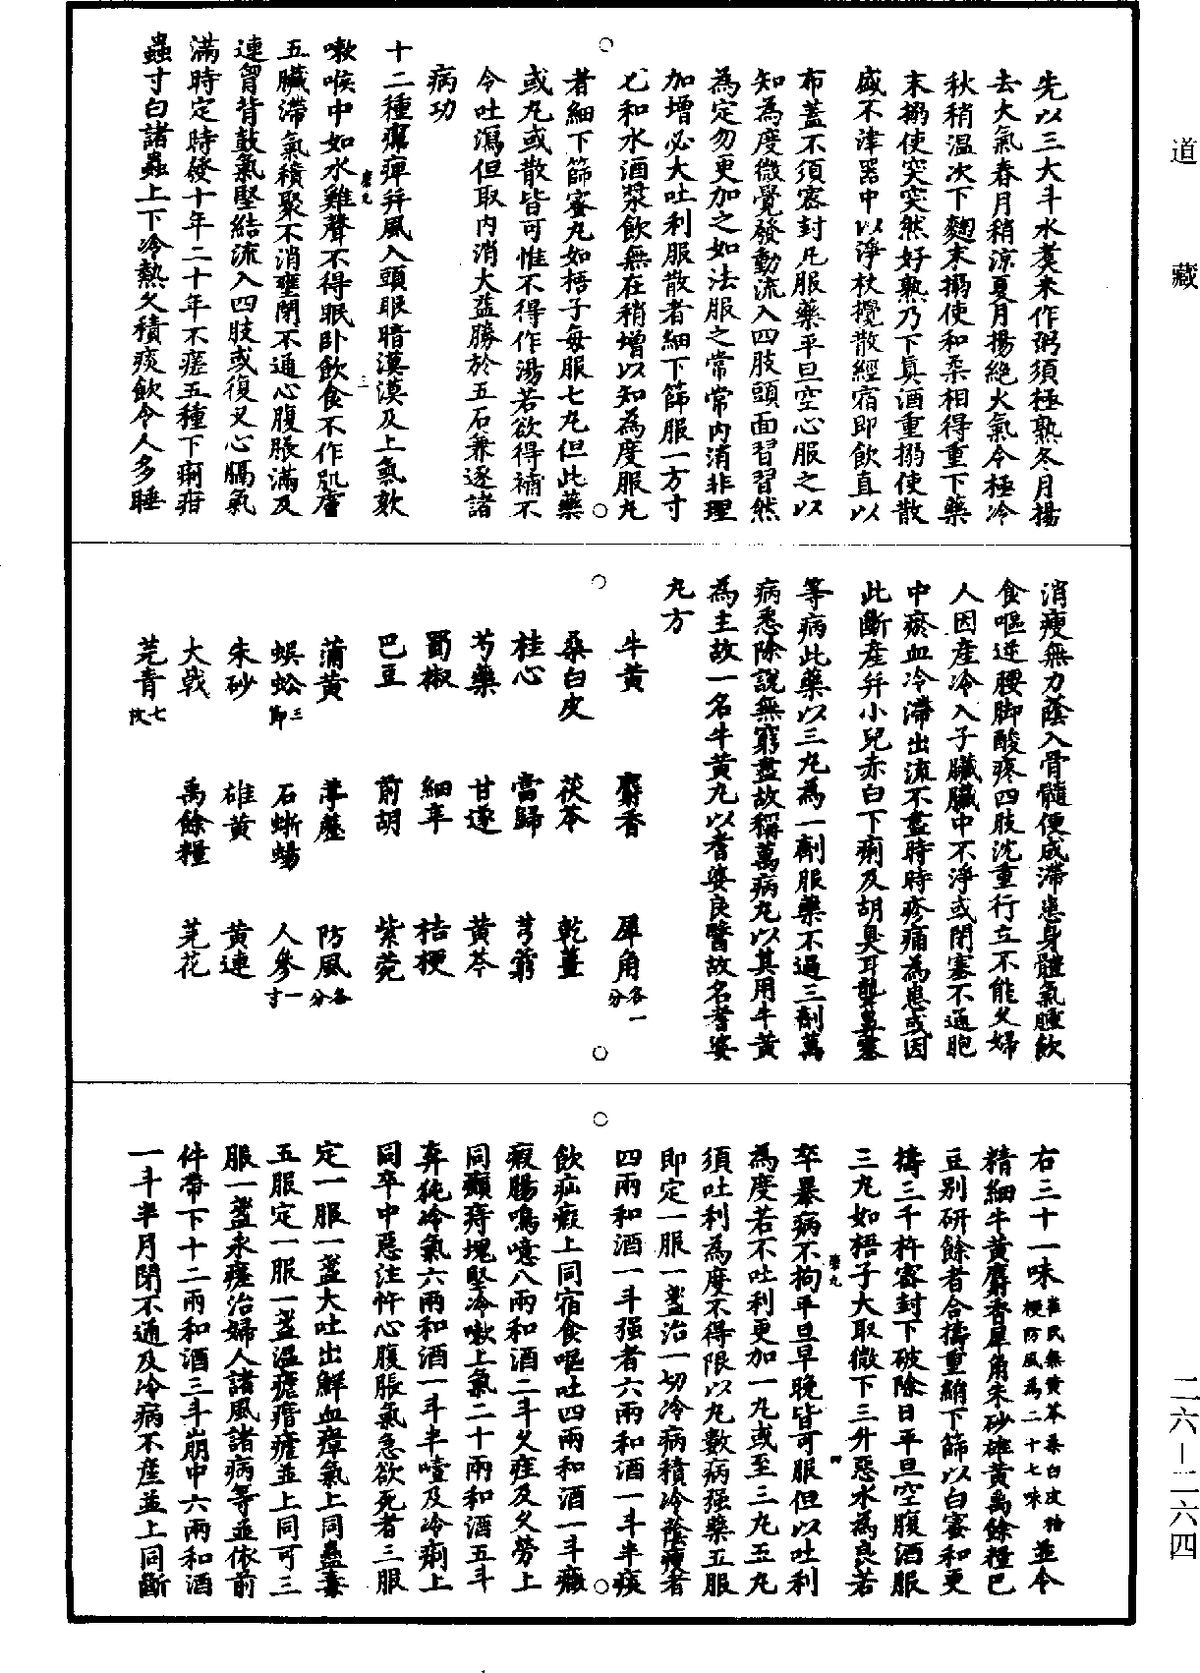 道藏
先以三大斗水煑米作粥須極熟冬月揚
去大氣春月稍涼夏月揚絕火氣令極冷
秋稍溫次下麴末搦使和柔相得重下藥
末搦使突突然好熟乃下眞酒重搦使散
盛不津器中以淨杖攪散經宿即飲直以
布蓋不須密封凡服藥平旦空心服之以
知為度微覺發動流入四肢頭面習習然
為定勿更加之如法服之常常內消非理
加增必大吐利服散者細下篩服一方寸
匕和水酒漿飲無在稍增以知為度服丸
者細下篩蜜丸如梧子每服七丸但此藥
或丸或散皆可惟不得作湯若欲得補不
令吐瀉但取內消大益勝於五石兼逐諸
病功
十二種癩痺并風入頭眼暗漠漠及上氣欬
嗽喉中如水雞聲不得眠臥飲食不作肌膚
五臟滯氣積聚不消壅閉不通心腹脹滿及
連胷背鼓氣堅結流入四肢或復叉心膈氣
滿時定時發十年二十年不瘥五種下痢疳
蟲寸白諸蟲上下冷熱久積痰飲令人多睡
消瘦無力蔭入骨髓便成滯患身體氣腫飲
食嘔逆腰脚酸疼四肢沈重行立不能久婦
人因產冷入子臟臟中不淨或閉塞不通胞
中瘀血冷滯出流不盡時時疼痛為患或因
此斷產并小兒赤白下痢及胡臭耳聾鼻塞
等病此藥以三丸為一劑服藥不過三劑萬
病悉除說無窮盡故稱萬病丸以其用牛黃
為主故一名牛黃丸以耆婆良醫故名耆婆
丸方
牛黃 麝香 犀角各一分
桑白皮 茯苓 乾薑
桂心 當歸 芎藭
芍藥 甘遂 黃芩
蜀椒 細辛 桔梗
巴豆 前胡 紫菀
蒲黃 葶藶 防風各分
蜈蚣三節 石蜥蜴 人參一寸
朱砂 雄黃 黃連
大戟 禹餘糧 芫花
芫青七枚
右三十一味崔氏無黃芩桑白皮桔梗防風為二十七味並令
精細牛黃麝香犀角朱砂雄黃禹餘糧巴
豆別研餘者合擣重絹下篩以白蜜和更
擣三千杵密封下破除日平旦空腹酒服
三丸如梧子大取微下三升惡水為良若
卒暴病不拘平旦早晚皆可服但以吐利
為度若不吐利更加一丸或至三丸五丸
須吐利為度不得限以丸數病强藥五服
即定一服一盞治一切冷病積冷蔭瘦者
四兩和酒一斗强者六兩和酒一斗半痰
飲疝癥上同宿食嘔吐四兩和酒一斗癥
瘕腸鳴噫八兩和酒二斗久疰及久勞上
同癲痔塊堅冷嗽上氣二十兩和酒五斗
奔㹠冷氣六兩和酒一斗半噎及冷痢上
同卒中惡注忤心腹脹氣急欲死者三服
定一服一盞大吐出鮮血瘴氣上同蠱毒
五服定一服一盞溫瘧痟瘧並上同可三
服一盞永瘥治婦人諸風諸病等並依前
件帶下十二兩和酒三斗崩中六兩和酒
一斗半月閉不通及冷病不產並上同斷
二六—二六四